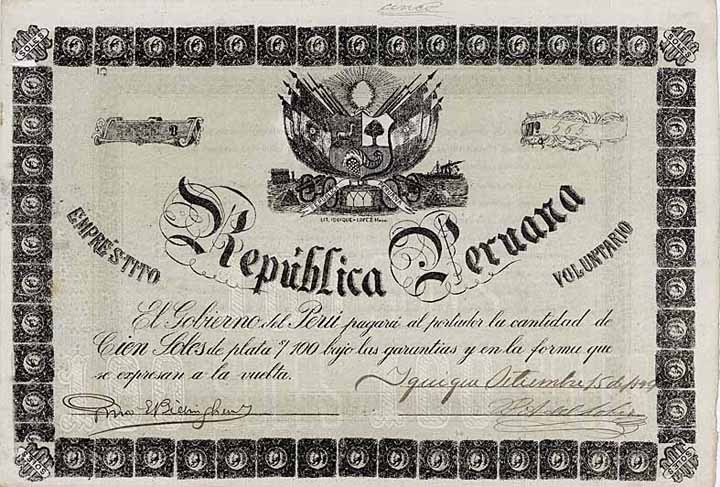 cinco
100 SOLES
100 SOLES
Nº 565
LIT. IQUIQUE-LOPEZ Hnos.
EMPRÉSTITO
República Peruana
VOLUNTARIO
El Gobierno del Perú pagará al portador la cantidad de
Cien Soles de plata $ 100 bajo las garantias y en la forma que
se expresan a la vuelta.
Iquique Setiembre 15 de
100 SOLES
100 SOLES